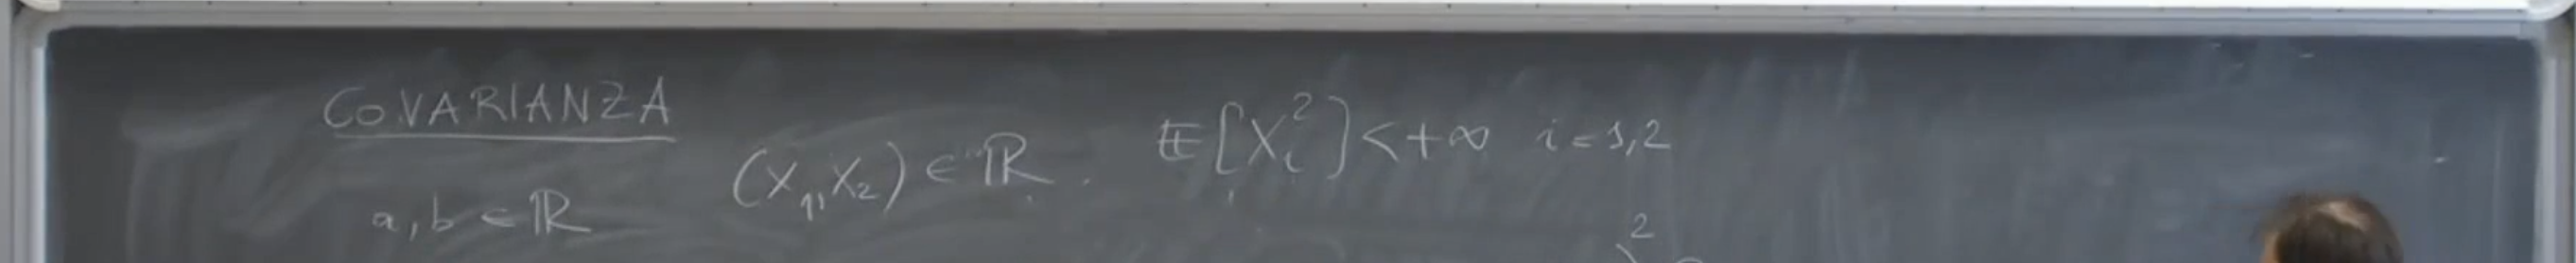 COVARIANZA
(X₁, X₂) ∈ ℝ. 𝔼[Xᵢ²] < +∞ i = 1,2
a, b ∈ ℝ
2